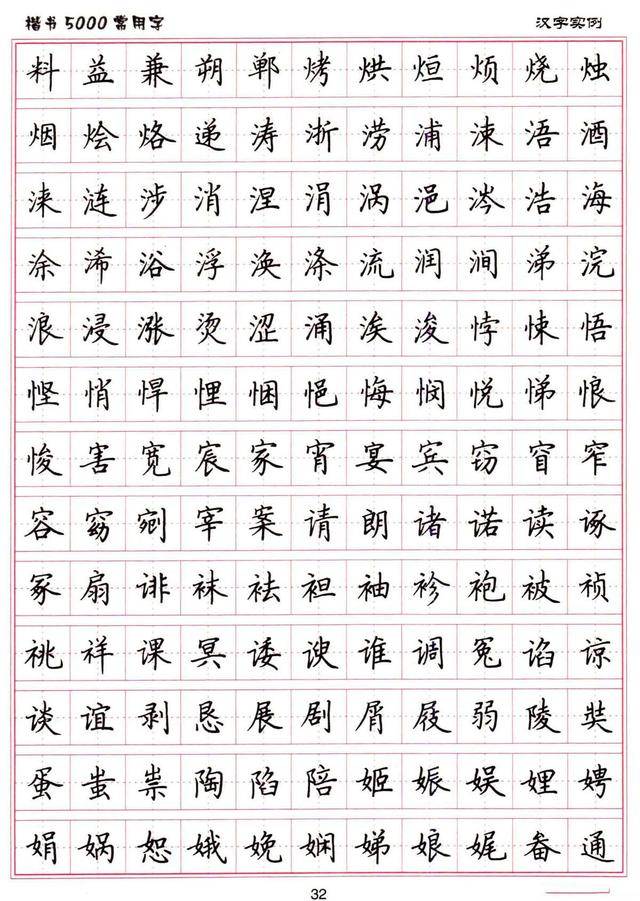 楷书5000常用字 汉字实例
料益兼朔郸烤烘烜烦烧烛
烟烩烙递涛浙涝浦涑浯酒
涞涟涉消涅涓涡浥涔浩海
涂浠浴浮涣涤流润涧涕浣
浪浸涨烫涩涌涘浚悖悚悟
悭悄悍悝悃悒悔悯悦悌悢
悛害宽宸家宵宴宾窃窅窄
容窈剜宰案请朗诸诺读诼
冢扇诽袜袪袒袖袗袍被祯
祧祥课冥诿谀谁调冤谄谅
谈谊剥恳展剧屑屐弱陵奘
蛋蚩祟陶陷陪姬娠娱娌娉
娟娲恕娥娩娴娣娘娓畚通
32